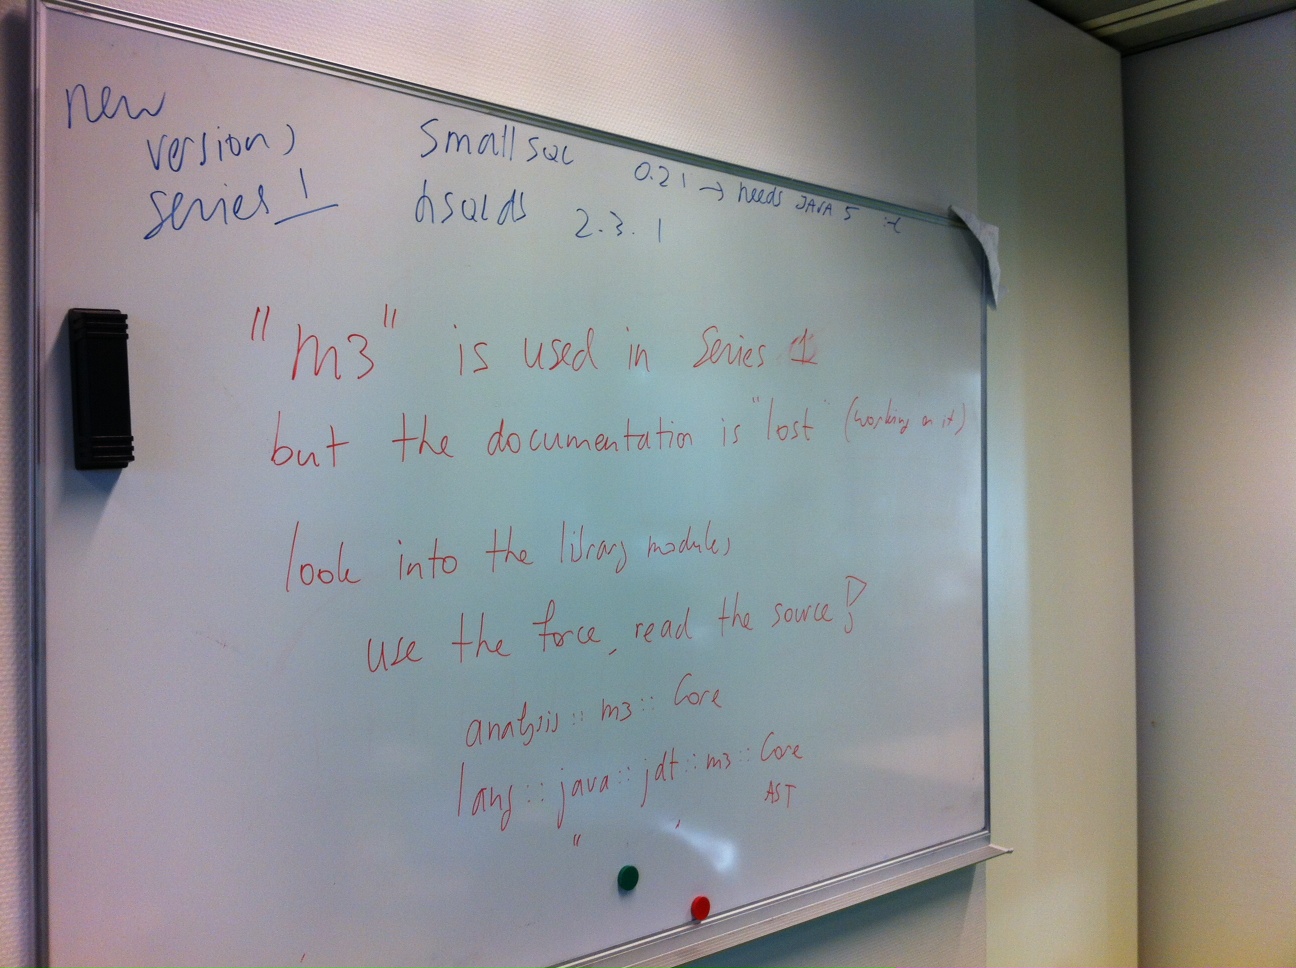 new
version,
series 1
smallsql 0.21 → needs JAVA 5 :-(
hsqldb 2.3.1
"m3" is used in Series 1
but the documentation is "lost" (working on it)
look into the library modules,
use the force, read the source!
analysis::m3::Core
lang::java::jdt::m3::Core
" " AST